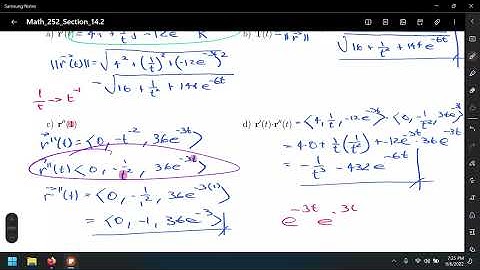 Samsung Notes
Math_252_Section_14.2
||r⃗'(t)|| = √4² + (1/t)² + (-12e^-3t)²
= √16 + 1/t² + 144e^-6t
√16 + 1/t² + 144e^-6t
1/t → t^-1
c) r''(1)
r⃗''(t) = ⟨0, -t^-2, 36e^-3t⟩
r⃗''(t) ⟨0, -1/t², 36e^-3t⟩
= ⟨0, -1/1², 36e^-3(1)⟩
= ⟨0, -1, 36e^-3⟩
d) r'(t)·r''(t) = ⟨4, 1/t, -12e^-3t⟩ · ⟨0, -1/t², 36e^-3t⟩
= 4·0 + 1/t(-1/t²) + -12e^-3t · 36e^-3t
= -1/t³ - 432e^-6t
e^-3t e^-3t
7:25 PM
11/6/2022